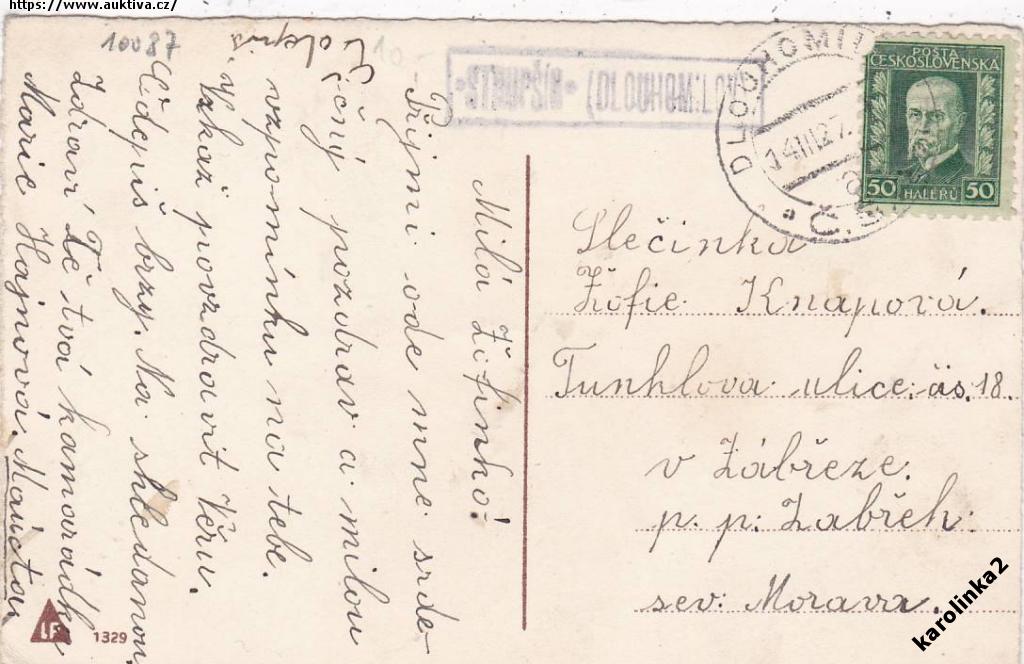 https://www.auktiva.cz/
10087
10-
STRUPŠÍN (DLOUHOMILOV)
DLOUHOMIL
14 III 27
Č.S.
POŠTA
ČESKOSLOVENSKÁ
50 HALÉŘŮ 50
Milá Žofinko!
Přijmi ode mne srde-
čný pozdrav a milou
vzpomínku na tebe.
Vzkaž pozdravit Věru.
odepiš brzy. Na shledanou.
Zdraví Tě tvá kamarádka
Marie Hajnová.
Slečinka
Žofie Knapová.
Tunklova ulice čís. 18.
v Zábřeze.
p. p. Zabřeh.
sev. Morava.
LF
1329
karolinka2